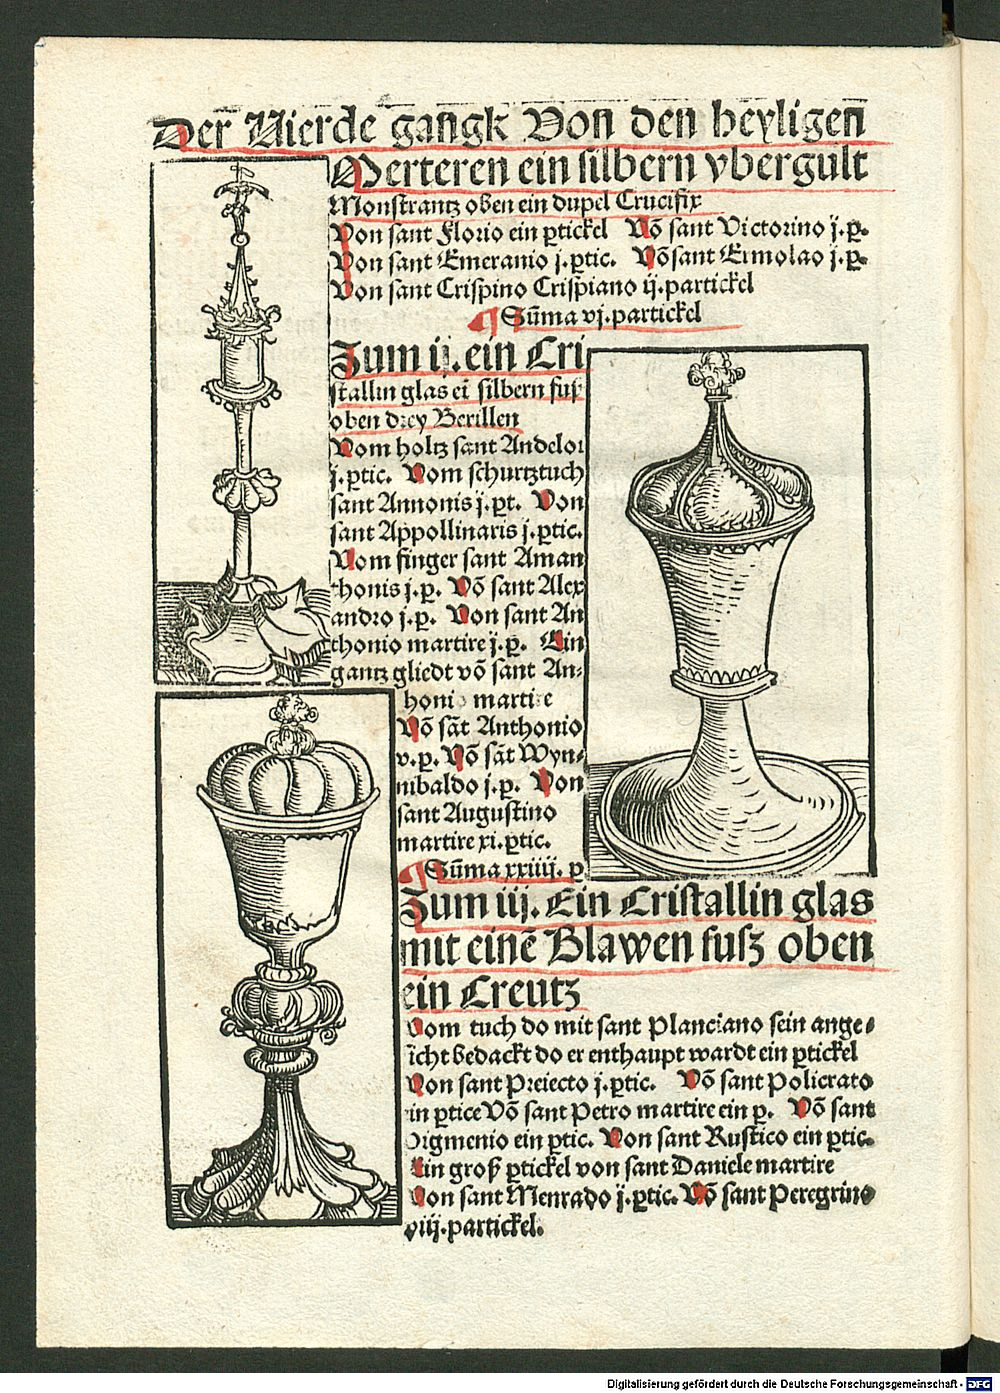 Der Vierde gangk Von den heyligen
Merteren ein silbern vbergult
Monstrantz oben ein dupel Crucifix
Von sant Florio ein ꝑtickel Võ sant Victorino j. ꝑ.
Von sant Emeranio j. ꝑtic. Võ sant Ermolao j. ꝑ.
Von sant Crispino Crispiano ij. partickel
¶ Sũma vj. partickel
Zum ij. ein Cri
stallin glas eĩ silbern fuß
oben drey Berillen
Vom holtz sant Andeloi
j. ꝑtic. Vom schurtztuch
sant Annonis j. ꝑt. Von
sant Appollinaris j. ꝑtic.
Vom finger sant Aman
thonis j. ꝑ. Võ sant Alex
andro j. ꝑ. Von sant An
thonio martire j. ꝑ. Ein
gantz gliedt võ sant An⸗
honio martire
Võ sãt Anthonio
v. ꝑ. Võ sãt Wyn⸗
nibaldo j. ꝑ. Von
sant Augustino
martire xi. ꝑtic.
¶ Sũma xxiiij. ꝑ
Zum iij. Ein Cristallin glas
mit einẽ Blawen fusz oben
ein Creutz
Vom tuch do mit sant Planciano sein ange⸗
icht bedackt do er enthaupt wardt ein ꝑtickel
Von sant Preiecto j. ꝑtic. Võ sant Policrato
in ꝑtice Võ sant Petro martire ein ꝑ. Võ sant
Pigmenio ein ꝑtic. Von sant Rustico ein ꝑtic.
Ein groß ꝑtickel von sant Daniele martire
Von sant Menrado j. ꝑtic. Võ sant Peregrino
viij. partickel.
Digitalisierung gefördert durch die Deutsche Forschungsgemeinschaft - DFG